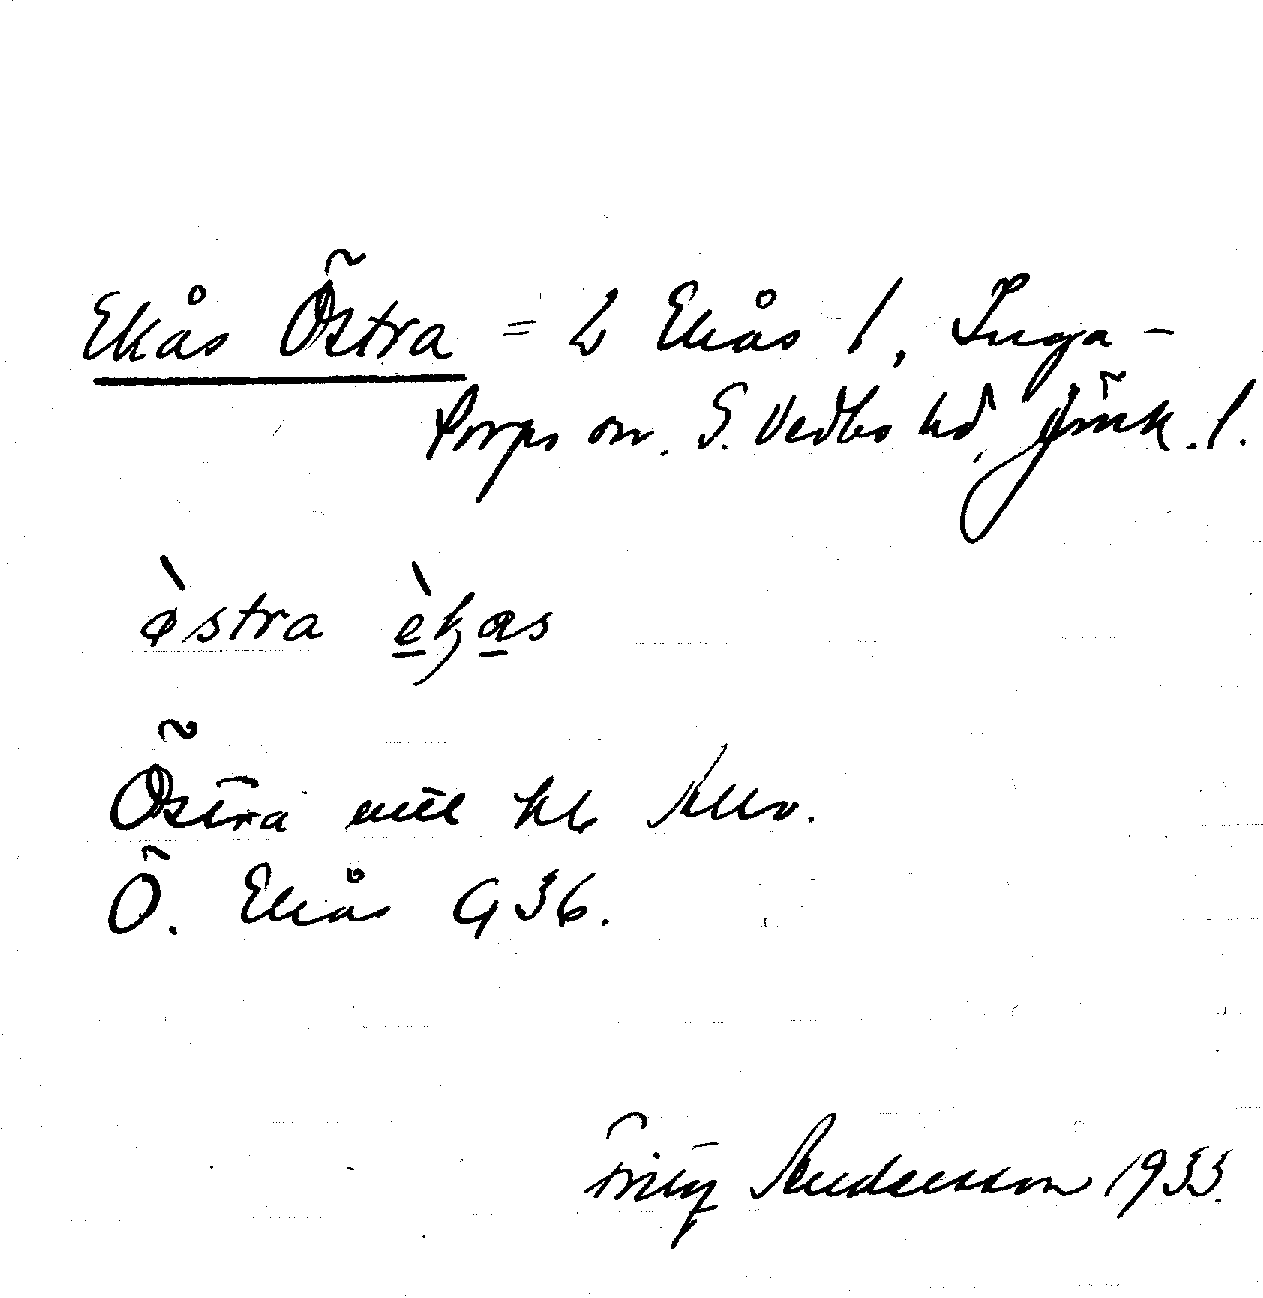 Ekås Östra = b Ekås 1, Inga-
torps sn. S. Vedbo hd, Jönk. l.
östra èkas
Östra
Ö. Ekås G 36.
Fritz Andersson 1933.